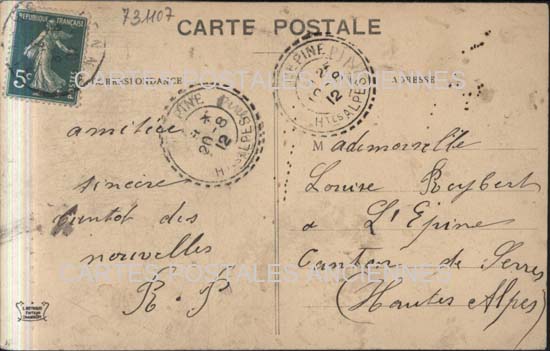 731107
CARTE POSTALE
RÉPUBLIQUE FRANÇAISE
5c
CORRESPONDANCE
ADRESSE
20 -8 12
Htes ALPES
EPINE
12
Htes ALPES
amitiée
sincère
bientot des
nouvelles
R. P
Mademoiselle
Louise Reybert
a L'Epine
Canton de Serres
(Hautes Alpes)
CARTES POSTALES ANCIENNES
CARTES POSTALES ANCIENNES